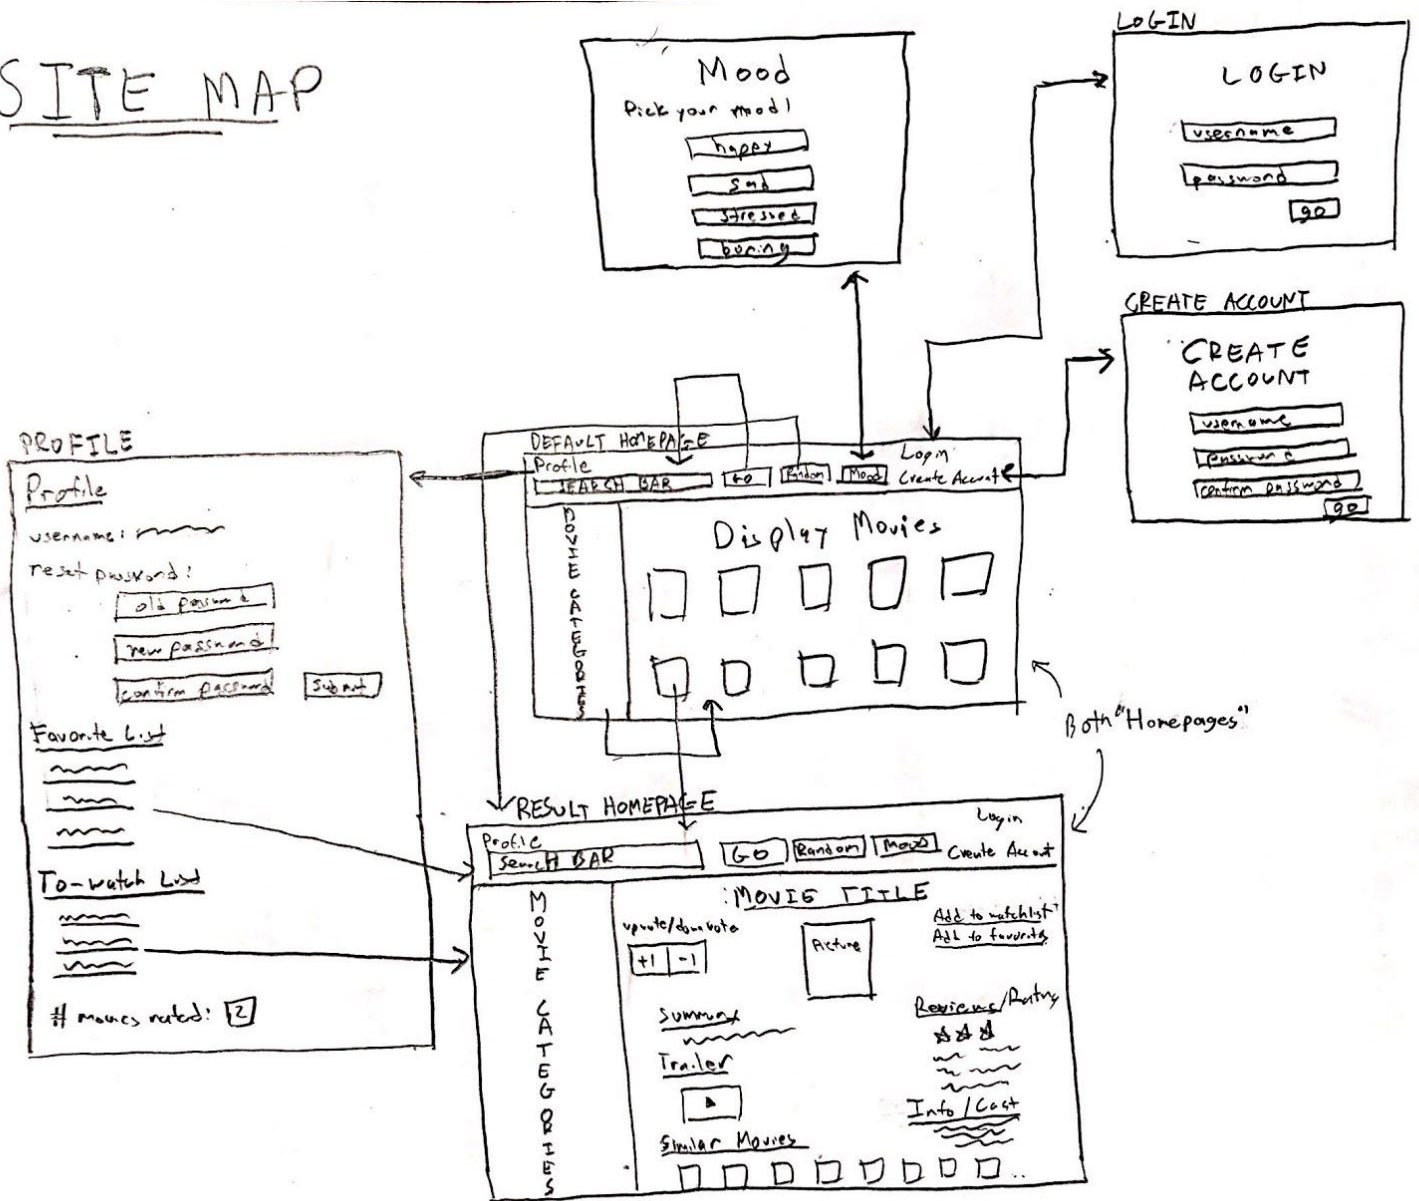 SITE MAP
Mood
Pick your mood!
happy
sad
stressed
boring
LOGIN
LOGIN
username
password
go
CREATE ACCOUNT
CREATE
ACCOUNT
username
password
confirm password
go
PROFILE
Profile
username:
reset password:
old password
new password
confirm password
Submit
Favorite List
To-watch List
# movies rated: 2
DEFAULT HOMEPAGE
Profile
Login
SEARCH BAR
GO
Random
Mood
Create Account
MOVIE CATEGORIES
Display Movies
Both "Homepages"
RESULT HOMEPAGE
Profile
Login
Search BAR
GO
Random
Mood
Create Account
MOVIE CATEGORIES
MOVIE TITLE
upvote/downvote
+1 -1
Picture
Add to watchlist
Add to favorites
Summary
Reviews/Rating
Trailer
Info/Cast
Similar Movies